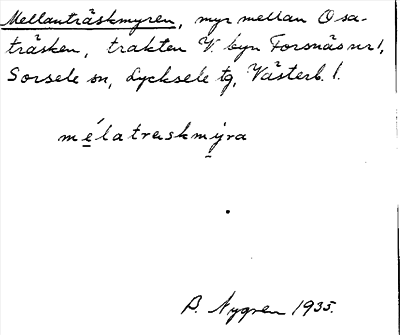 Mellanträskmyren, myr mellan Osa-
träsken, trakten V. byn Forsnäs nr 1,
Sorsele sn, Lycksele tg, Västerb. l.
mélatraskmýra
B. Nygren 1935.